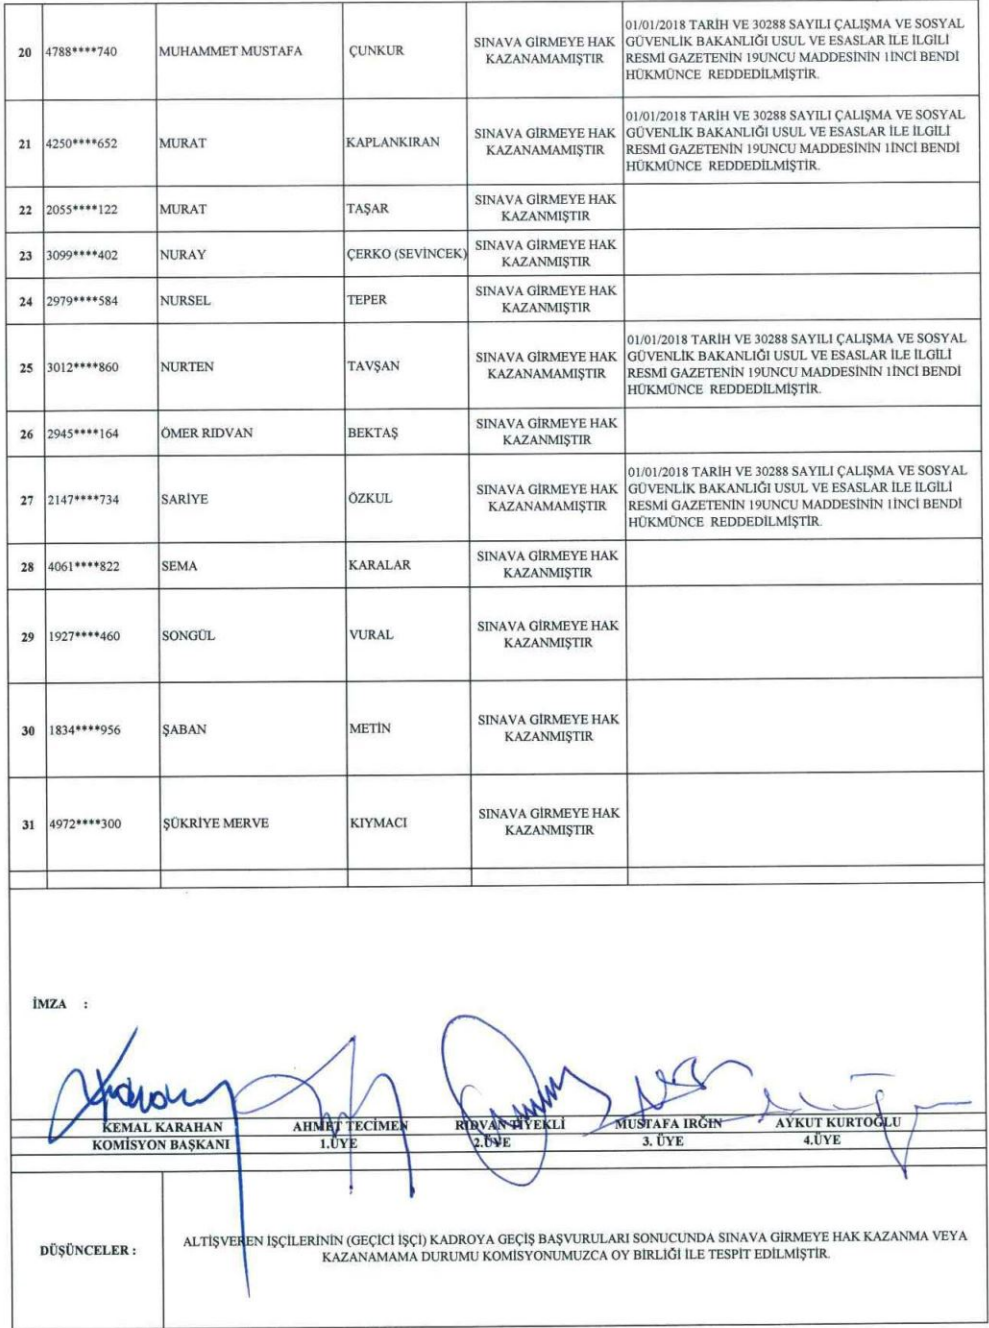 20 4788****740 MUHAMMET MUSTAFA ÇUNKUR SINAVA GİRMEYE HAK KAZANAMAMIŞTIR 01/01/2018 TARİH VE 30288 SAYILI ÇALIŞMA VE SOSYAL
GÜVENLİK BAKANLIĞI USUL VE ESASLAR İLE İLGİLİ
RESMİ GAZETENİN 19UNCU MADDESİNİN 1İNCİ BENDİ
HÜKMÜNCE REDDEDİLMİŞTİR.
21 4250****652 MURAT KAPLANKIRAN SINAVA GİRMEYE HAK KAZANAMAMIŞTIR 01/01/2018 TARİH VE 30288 SAYILI ÇALIŞMA VE SOSYAL
GÜVENLİK BAKANLIĞI USUL VE ESASLAR İLE İLGİLİ
RESMİ GAZETENİN 19UNCU MADDESİNİN 1İNCİ BENDİ
HÜKMÜNCE REDDEDİLMİŞTİR.
22 2055****122 MURAT TAŞAR SINAVA GİRMEYE HAK
KAZANMIŞTIR
23 3099****402 NURAY ÇERKO (SEVİNCEK) SINAVA GİRMEYE HAK
KAZANMIŞTIR
24 2979****584 NURSEL TEPER SINAVA GİRMEYE HAK
KAZANMIŞTIR
25 3012****860 NURTEN TAVŞAN SINAVA GİRMEYE HAK KAZANAMAMIŞTIR 01/01/2018 TARİH VE 30288 SAYILI ÇALIŞMA VE SOSYAL
GÜVENLİK BAKANLIĞI USUL VE ESASLAR İLE İLGİLİ
RESMİ GAZETENİN 19UNCU MADDESİNİN 1İNCİ BENDİ
HÜKMÜNCE REDDEDİLMİŞTİR.
26 2945****164 ÖMER RIDVAN BEKTAŞ SINAVA GİRMEYE HAK
KAZANMIŞTIR
27 2147****734 SARİYE ÖZKUL SINAVA GİRMEYE HAK KAZANAMAMIŞTIR 01/01/2018 TARİH VE 30288 SAYILI ÇALIŞMA VE SOSYAL
GÜVENLİK BAKANLIĞI USUL VE ESASLAR İLE İLGİLİ
RESMİ GAZETENİN 19UNCU MADDESİNİN 1İNCİ BENDİ
HÜKMÜNCE REDDEDİLMİŞTİR.
28 4061****822 SEMA KARALAR SINAVA GİRMEYE HAK
KAZANMIŞTIR
29 1927****460 SONGÜL VURAL SINAVA GİRMEYE HAK
KAZANMIŞTIR
30 1834****956 ŞABAN METİN SINAVA GİRMEYE HAK
KAZANMIŞTIR
31 4972****300 ŞÜKRİYE MERVE KIYMACI SINAVA GİRMEYE HAK
KAZANMIŞTIR
İMZA :
KEMAL KARAHAN AHMET TECİMEN RIDVAN MUSTAFA IRĞIN AYKUT KURTOĞLU
KOMİSYON BAŞKANI 1.ÜYE 2.ÜYE 3. ÜYE 4.ÜYE
DÜŞÜNCELER : ALTİŞVEREN İŞÇİLERİNİN (GEÇİCİ İŞÇİ) KADROYA GEÇİŞ BAŞVURULARI SONUCUNDA SINAVA GİRMEYE HAK KAZANMA VEYA
KAZANAMAMA DURUMU KOMİSYONUMUZCA OY BİRLİĞİ İLE TESPİT EDİLMİŞTİR.